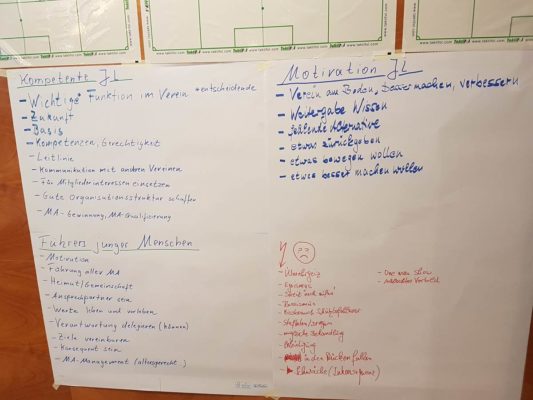 www.taktifol.com
Kompetente JL
- Wichtige* Funktion im Verein *entscheidende
- Zukunft
- Basis
- Kompetenzen, Gerechtigkeit
- Leitlinie
- Kommunikation mit anderen Vereinen
- Für Mitgliederinteressen einsetzen
- Gute Organisationsstruktur schaffen
- MA-Gewinnung, MA-Qualifizierung
Motivation JL
- Verein am Boden, besser machen, verbessern
- Weitergabe Wissen
- fehlende Alternative
- etwas zurückgeben
- etwas bewegen wollen
- etwas besser machen wollen
Führers junger Menschen
- Motivation
- Führung aller MA
- Heimat/Gemeinschaft
- Ansprechpartner sein
- Werte leben und vorleben
- Verantwortung delegieren (können)
- Ziele vereinbaren
- Konsequent sein
- MA-Management (altersgerecht)
- Egoismus
- Rassismus
- Beleidigung
- in den Rücken fallen
- One man show
- schlechtes Vorbild